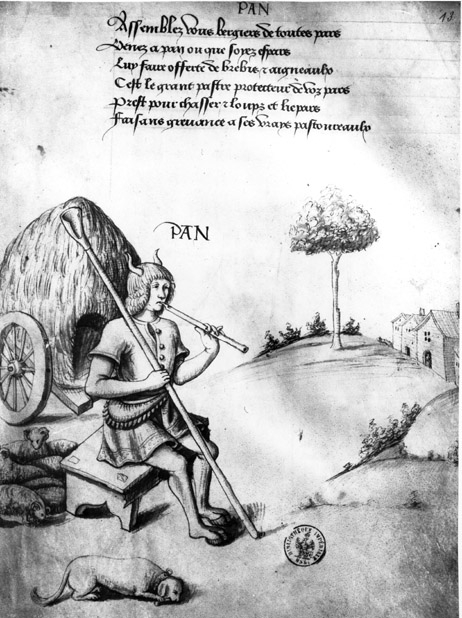 PAN
13.
Assemblez vous bergiers de toutes pars
Venez a pan ou que soyez espars
Luy faire offerte de brebis & aigneaulx
C'est le grant pastre protecteur de voz parcs
Prest pour chasser & loups et liepars
Faisans grevance a ses vrays pastoureaulx
PAN